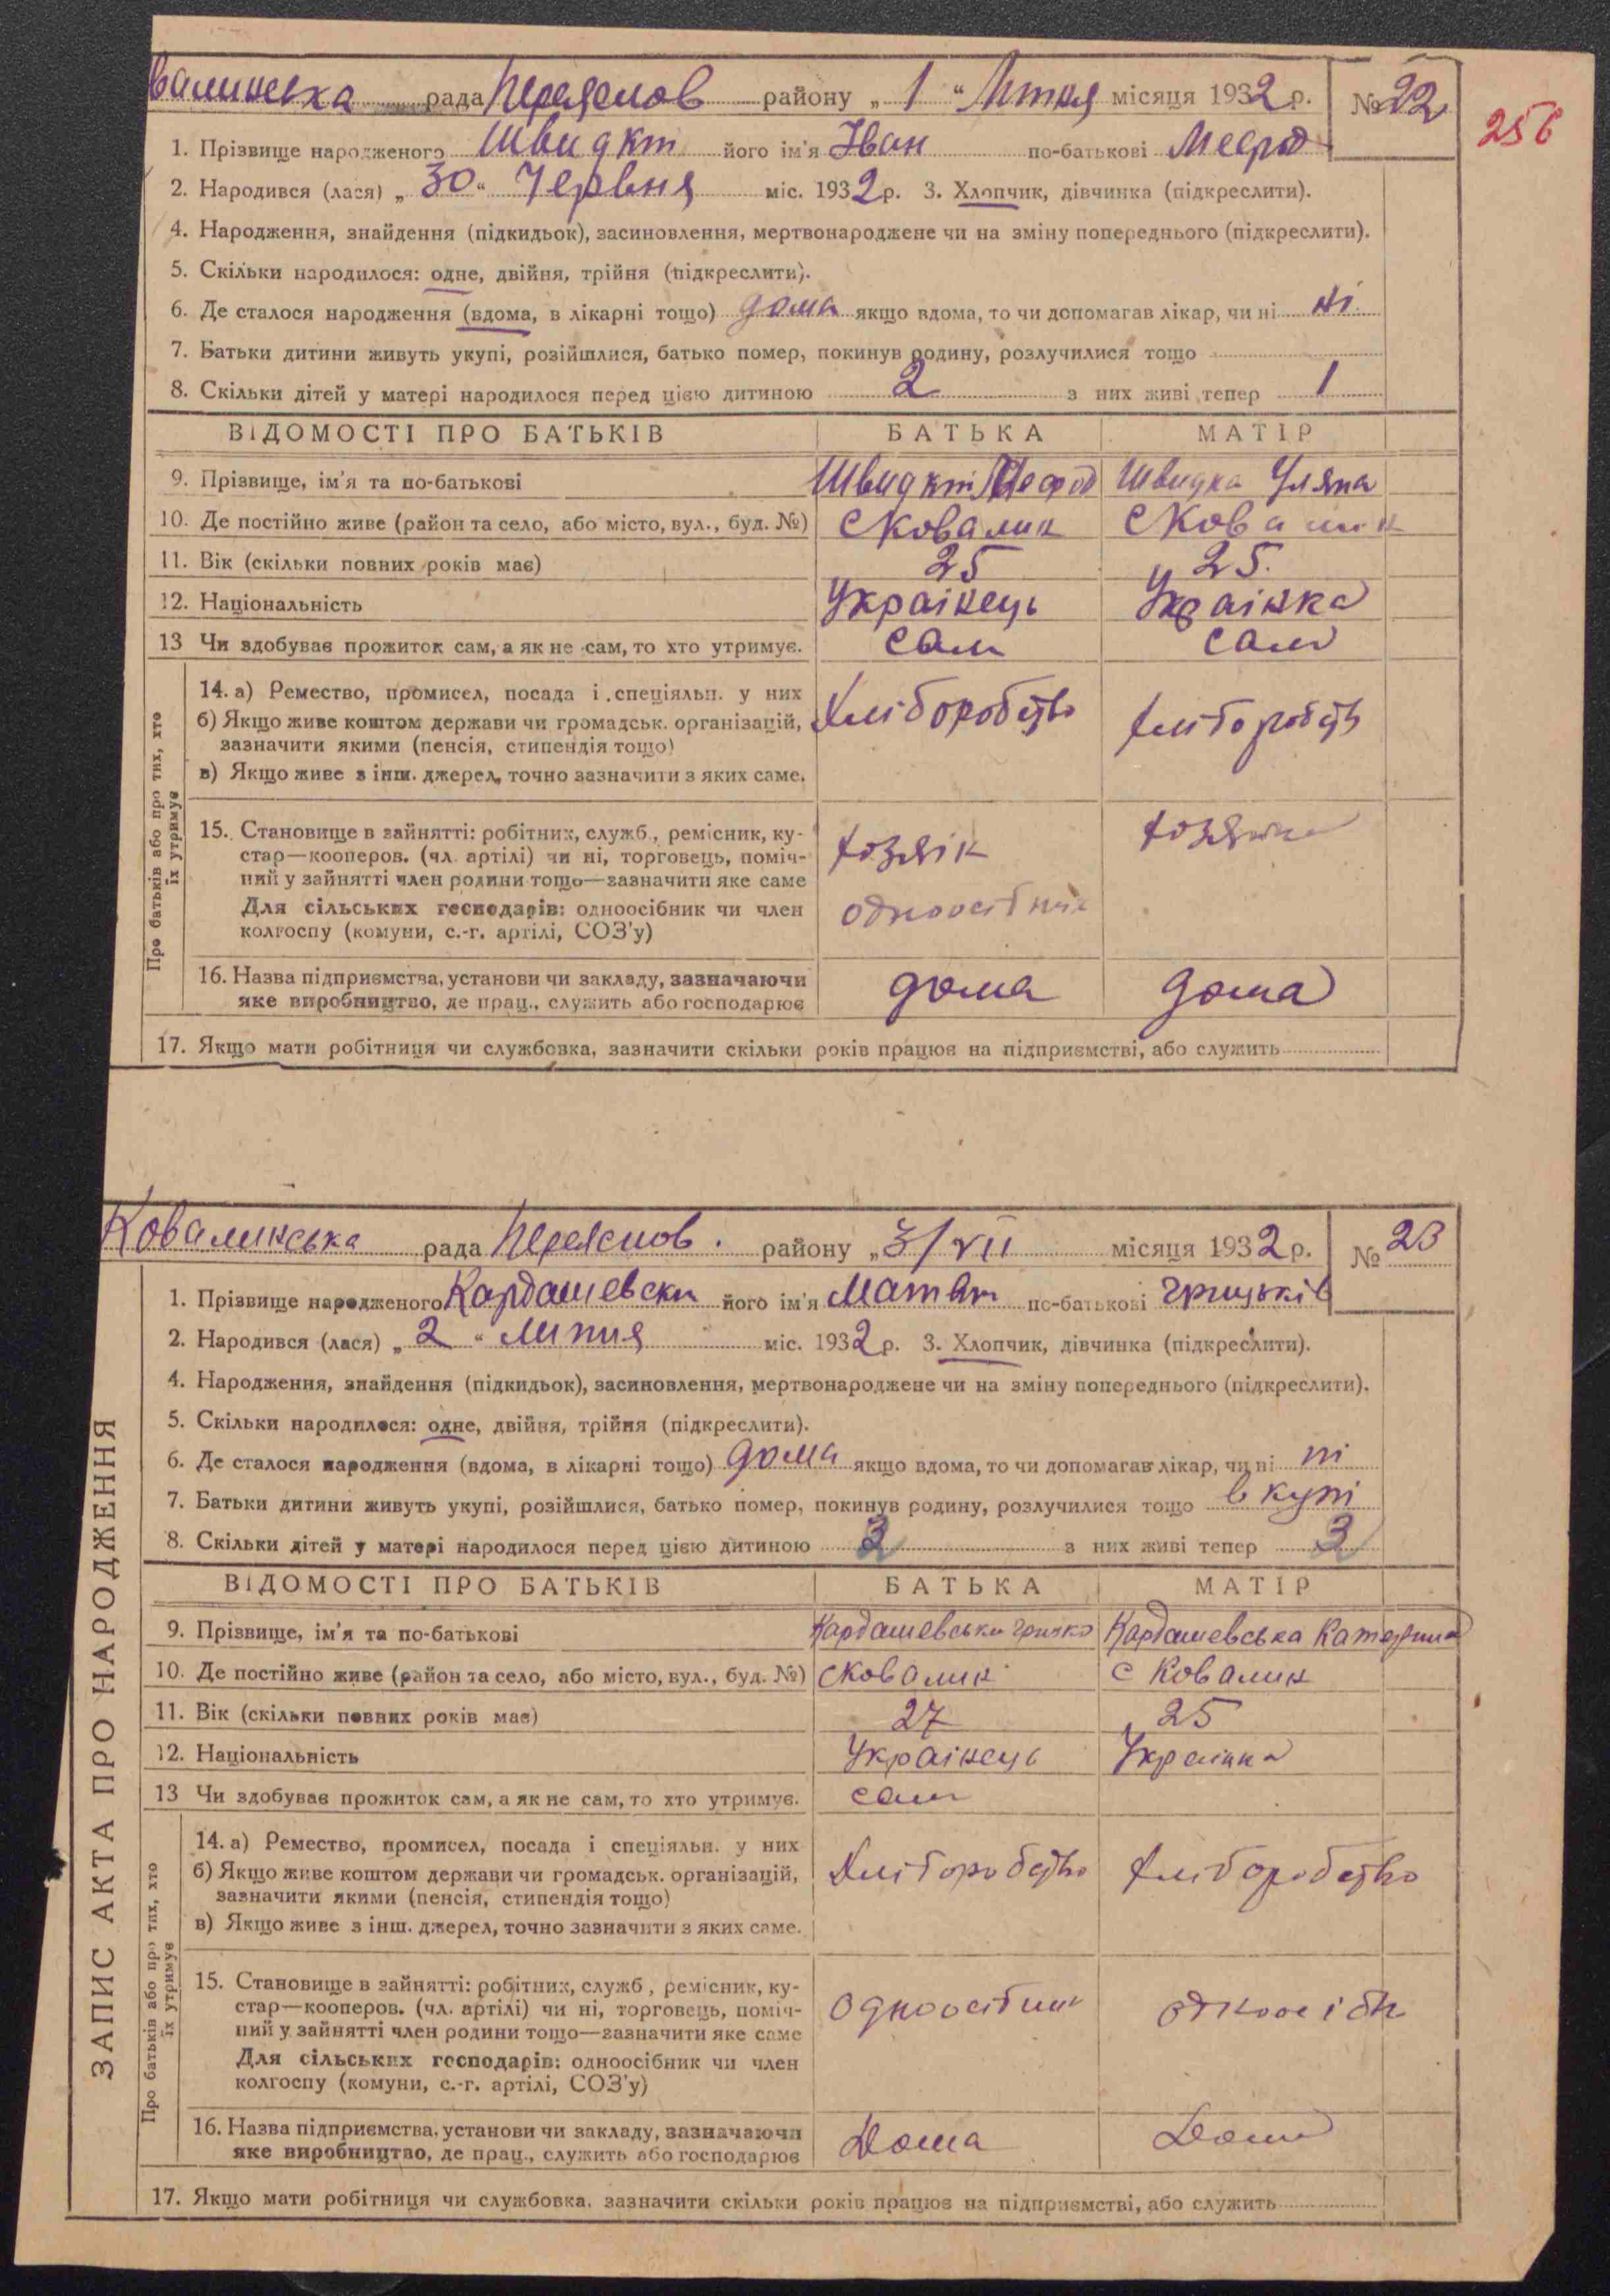 валинська рада Переяслов району „ 1 “ Липня місяця 1932 р. № 22
256
1. Прізвище народженого Швидкий його ім'я Іван по-батькові Мефод
2. Народився (лася) „ 30 “ Червня міс. 1932 р. 3. Хлопчик, дівчинка (підкреслити).
4. Народження, знайдення (підкидьок), засиновлення, мертвонароджене чи на зміну попереднього (підкреслити).
5. Скільки народилося: одне, двійня, трійня (підкреслити).
6. Де сталося народження (вдома, в лікарні тощо) дома якщо вдома, то чи допомагав лікар, чи ні ні
7. Батьки дитини живуть укупі, розійшлися, батько помер, покинув родину, розлучилися тощо
8. Скільки дітей у матері народилося перед цією дитиною 2 з них живі тепер 1
ВІДОМОСТІ ПРО БАТЬКІВ БАТЬКА МАТІР
9. Прізвище, ім'я та по-батькові Швидкий Мефод Швидка Уляна
10. Де постійно живе (район та село, або місто, вул., буд. №) с Ковалин с Ковалин
11. Вік (скільки повних років має) 25 25.
12. Національність Українець Українка
13 Чи здобуває прожиток сам, а як не сам, то хто утримує. сам сама
Про батьків або про тих, хто їх утримує
14. а) Ремество, промисел, посада і спеціяльн. у них Хліборобство Хліборобств
б) Якщо живе коштом держави чи громадськ. організацій,
зазначити якими (пенсія, стипендія тощо)
в) Якщо живе з інш. джерел, точно зазначити з яких саме.
15. Становище в зайнятті: робітник, служб., ремісник, ку- хозяїк хозяйка
стар—кооперов. (чл. артілі) чи ні, торговець, поміч-
ний у зайнятті член родини тощо—зазначити яке саме
Для сільських господарів: одноосібник чи член одноосібник
колгоспу (комуни, с.-г. артілі, СОЗ'у)
16. Назва підприємства, установи чи закладу, зазначаючи дома дома
яке виробництво, де прац., служить або господарює
17. Якщо мати робітниця чи службовка, зазначити скільки років працює на підприємстві, або служить
Ковалинська рада Переяслов. району „ 3/VII місяця 1932 р. № 23
ЗАПИС АКТА ПРО НАРОДЖЕННЯ
1. Прізвище народженого Кардашевски його ім'я Матвій по-батькові Грицьків
2. Народився (лася) „ 2 “ Липня міс. 1932 р. 3. Хлопчик, дівчинка (підкреслити).
4. Народження, знайдення (підкидьок), засиновлення, мертвонароджене чи на зміну попереднього (підкреслити).
5. Скільки народилося: одне, двійня, трійня (підкреслити).
6. Де сталося народження (вдома, в лікарні тощо) дома якщо вдома, то чи допомагав лікар, чи ні ні
7. Батьки дитини живуть укупі, розійшлися, батько помер, покинув родину, розлучилися тощо в купі
8. Скільки дітей у матері народилося перед цією дитиною 3 з них живі тепер 3
ВІДОМОСТІ ПРО БАТЬКІВ БАТЬКА МАТІР
9. Прізвище, ім'я та по-батькові Кардашевськи Грицко Кардашевська Катерина
10. Де постійно живе (район та село, або місто, вул., буд. №) с Ковалин с Ковалин
11. Вік (скільки повних років має) 27 25
12. Національність Українець Українка
13 Чи здобуває прожиток сам, а як не сам, то хто утримує. сам
Про батьків або про тих, хто їх утримує
14. а) Ремество, промисел, посада і спеціяльн. у них Хліборобство Хліборобство
б) Якщо живе коштом держави чи громадськ. організацій,
зазначити якими (пенсія, стипендія тощо)
в) Якщо живе з інш. джерел, точно зазначити з яких саме.
15. Становище в зайнятті: робітник, служб., ремісник, ку- одноосібник одноосібн
стар—кооперов. (чл. артілі) чи ні, торговець, поміч-
ний у зайнятті член родини тощо—зазначити яке саме
Для сільських господарів: одноосібник чи член
колгоспу (комуни, с.-г. артілі, СОЗ'у)
16. Назва підприємства, установи чи закладу, зазначаючи Дома Дома
яке виробництво, де прац., служить або господарює
17. Якщо мати робітниця чи службовка, зазначити скільки років працює на підприємстві, або служить